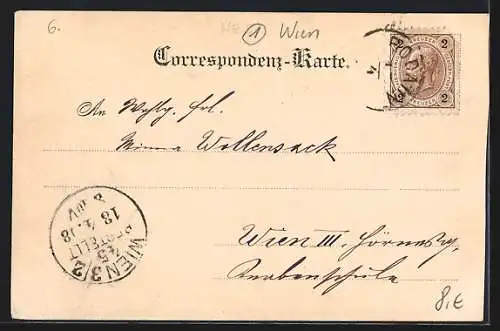 6.
1 Wien
Correspondenz-Karte.
2 2
2 2
An Wohlg. Frl.
Minna Wollensack
Wien III. Hörnesg.
Knabenschule
WIEN 3/2
45
BESTELLT
18. 4. 98
8.
8,€